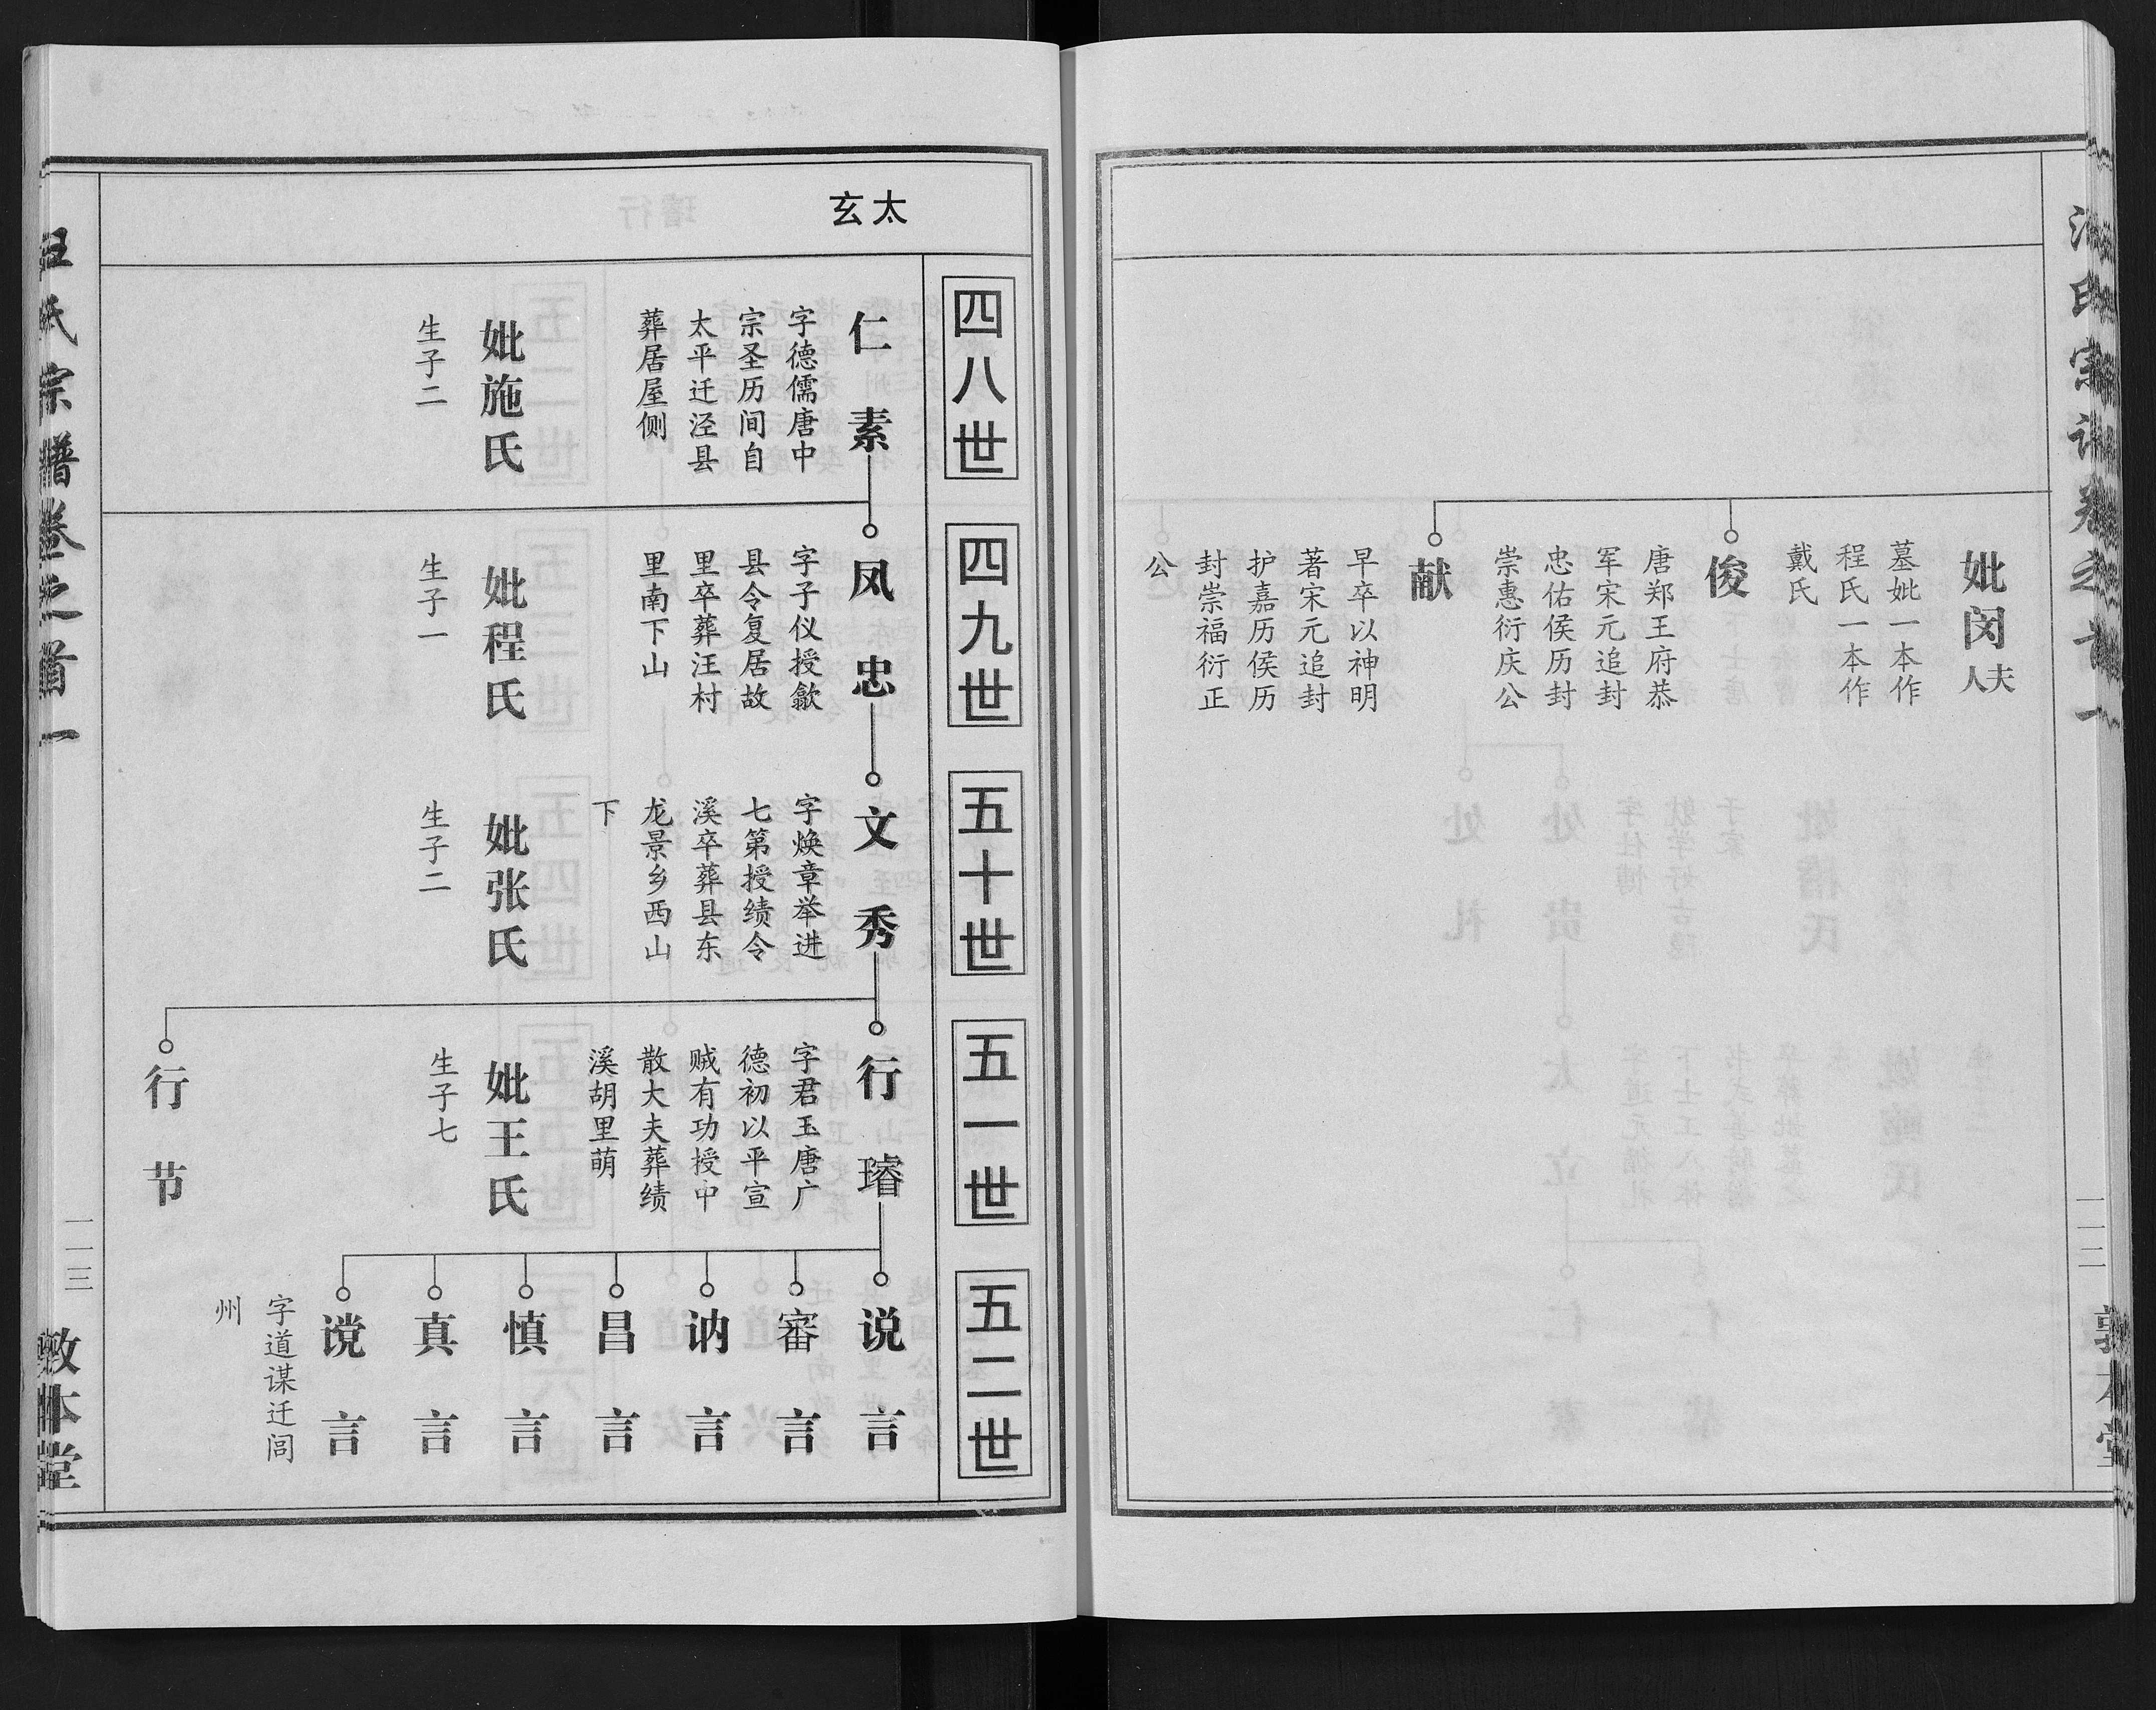 妣闵夫人
墓妣一本作
程氏一本作
戴氏
俊
唐郑王府恭
军宋元追封
忠佑侯历封
崇惠衍庆公
献
早卒以神明
著宋元追封
护嘉历侯历
封崇福衍正
公
一一二
太玄
四八世
四九世
五十世
五一世
五二世
仁素
字德儒唐中
宗圣历间自
太平迁泾县
葬居屋侧
妣施氏
生子二
凤忠
字子仪授歙
县令复居故
里卒葬汪村
里南下山
妣程氏
生子一
文秀
字焕章举进
七第授绩令
溪卒葬县东
龙景乡西山
下
妣张氏
生子二
行璿
字君玉唐广
德初以平宣
贼有功授中
散大夫葬绩
溪胡里萌
妣王氏
生子七
行节
说言
审言
讷言
昌言
慎言
真言
谠言
字道谋迁闾
州
汪氏宗谱卷之首一
一一三
敦本堂